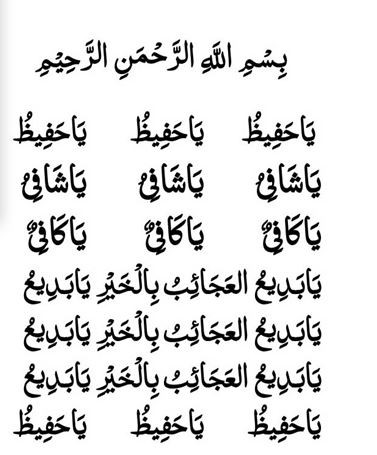 بِسْمِ اللَّهِ الرَّحْمَنِ الرَّحِيْمِ
يَاحَفِيظُ يَاحَفِيظُ يَاحَفِيظُ
يَاشَافِيُ يَاشَافِيُ يَاشَافِيُ
يَاكَافِيٌ يَاكَافِيٌ يَاكَافِيٌ
يَابَدِيعُ العَجَائِبُ بِالْخَيْرِ يَابَدِيعُ
يَابَدِيعُ العَجَائِبُ بِالْخَيْرِ يَابَدِيعُ
يَابَدِيعُ العَجَائِبُ بِالْخَيْرِ يَابَدِيعُ
يَاحَفِيظُ يَاحَفِيظُ يَاحَفِيظُ